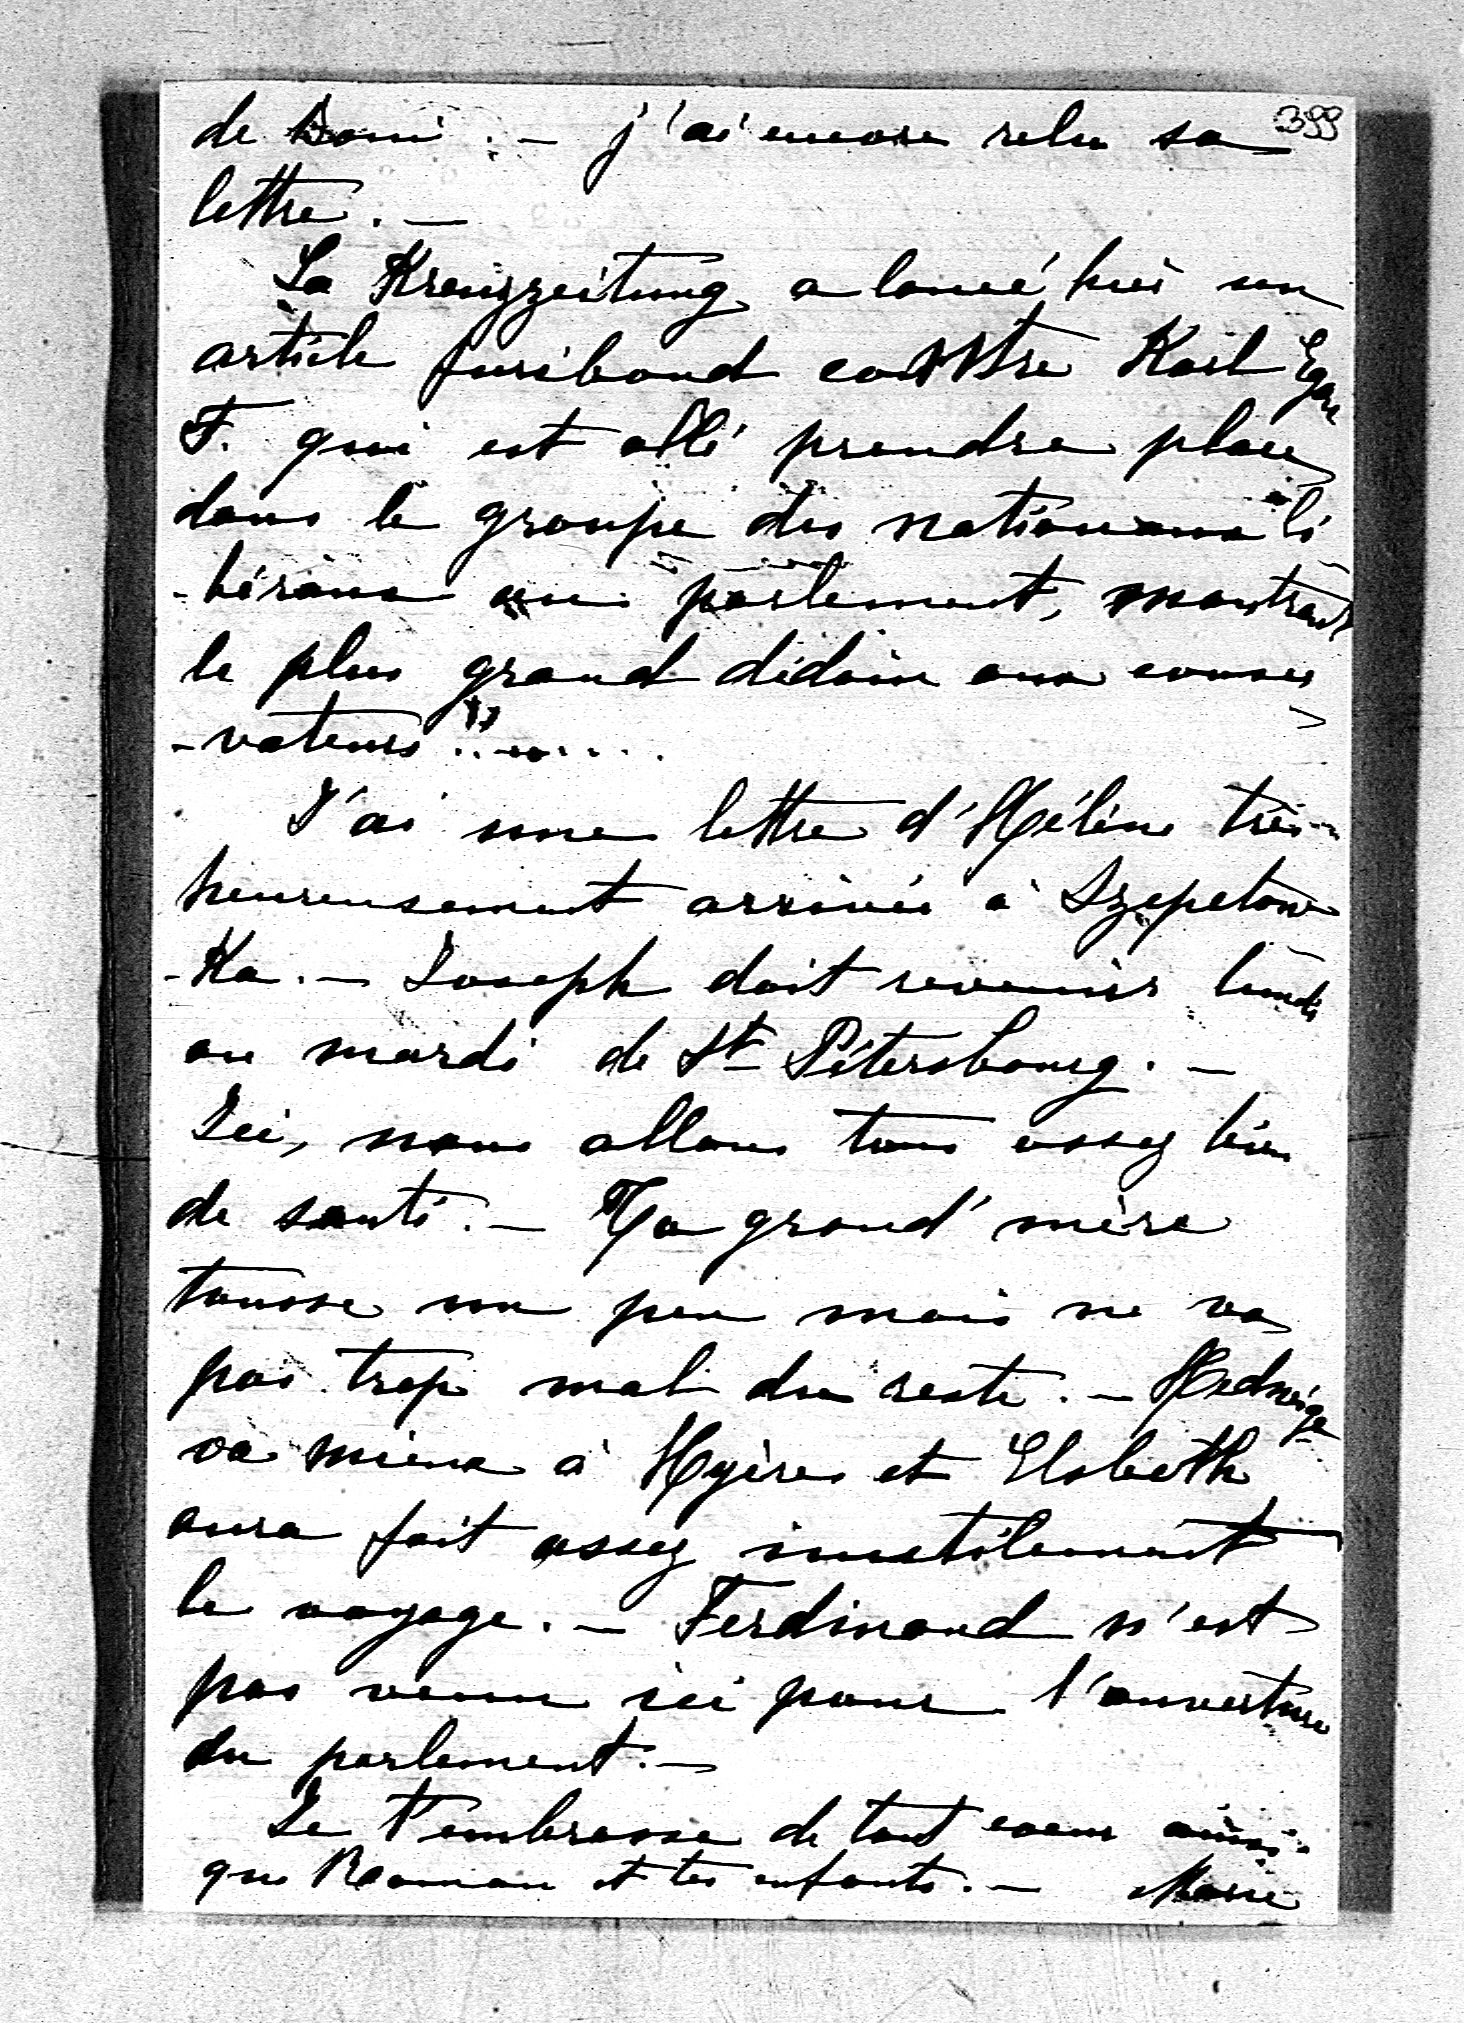 399
de Doni. — j'ai encore relu sa
lettre. —
La Kreuzzeitung a lancé hier un
article furibond contre Karl Egon
F. qui est allé prendre place
dans le groupe des nationaux li
-béraux au parlement, montrant
le plus grand dédain aux conser
-vateurs
J'ai une lettre d'Hélène très
heureusement arrivée à Szepetow
-Ka. — Joseph doit revenir lundi
ou mardi de St Pétersbourg. —
Ici, nous allons tous assez bien
de santé. — Ta grand'mère
tousse un peu mais ne va
pas trop mal du reste. — Hedwige
va mieux à Hyères et Elsbeth
aura fait assez inutilement
le voyage. — Ferdinand n'est
pas venu ici pour l'ouverture
du parlement. —
Je t'embrasse de tout coeur ainsi
que Roman et tes enfants. — Marie